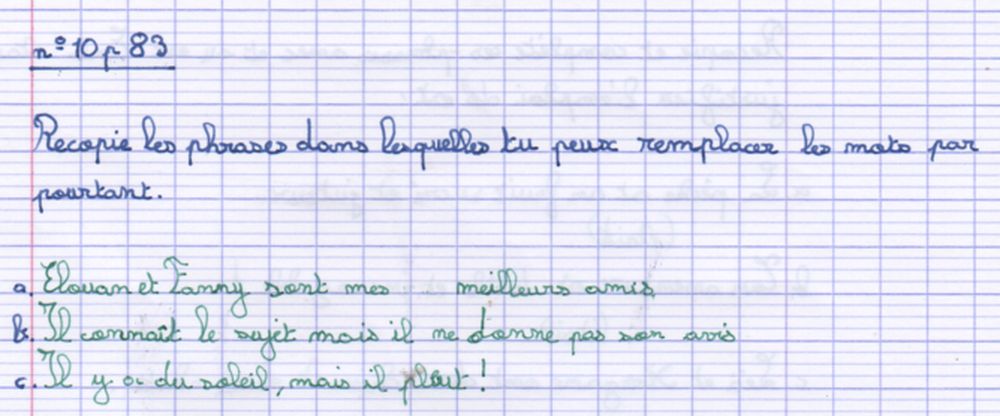 n° 10 p 83
Recopie les phrases dans lesquelles tu peux remplacer les mots par
pourtant.
a. Elouan et Fanny sont mes meilleurs amis.
b. Il connaît le sujet mais il ne donne pas son avis
c. Il y a du soleil, mais il pleut !